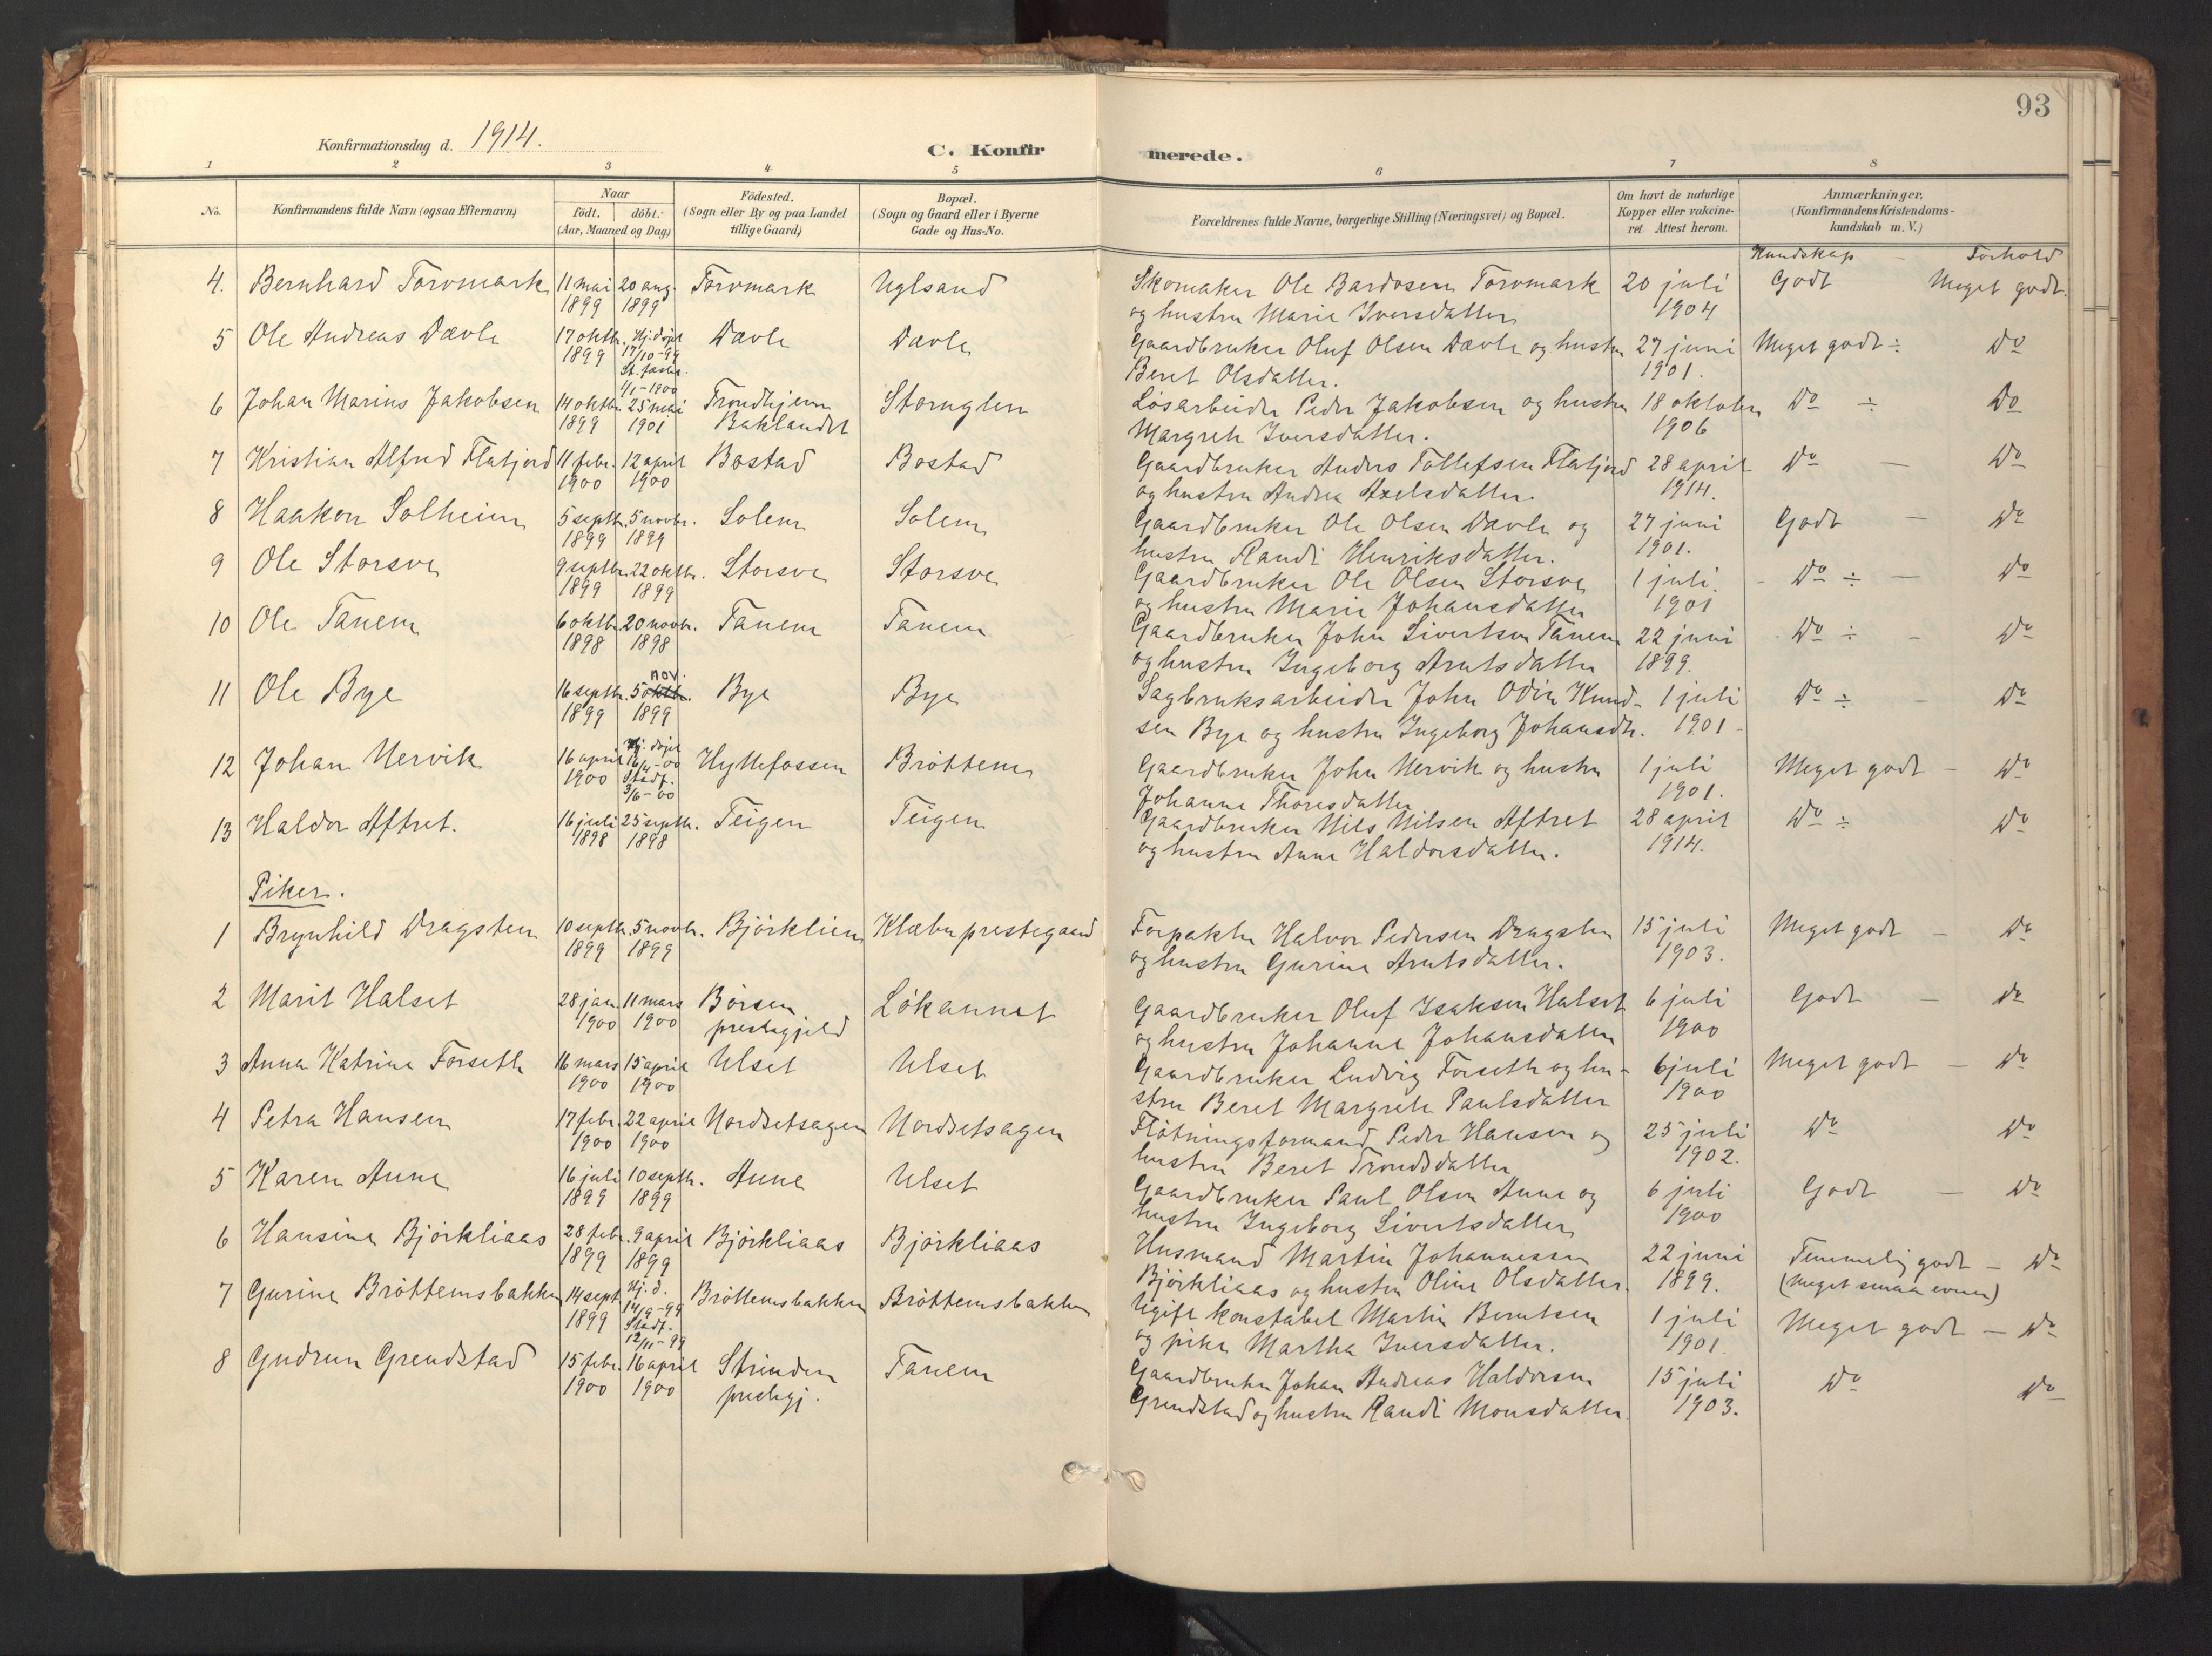 93
Konfirmationsdag d. 1914.
C. Konfirmerede.
1 2 3 4 5 6 7 8
No.
Konfirmandens fulde Navn (ogsaa Efternavn)
Naar
födt. döbt.
(Aar, Maaned og Dag)
Födested.
(Sogn eller By og paa Landet
tillige Gaard)
Bopæl.
(Sogn og Gaard eller i Byerne
Gade og Hus-No.
Forældrenes fulde Navne, borgerlige Stilling (Næringsvei) og Bopæl.
Om havt de naturlige
Kopper eller vakcine-
ret. Attest herom.
Anmærkninger,
(Konfirmandens Kristendoms-
kundskab m. V.)
Kundskap — Forhold
4. Bernhard Torvmark 11 mai 20 aug. Torvmark Uglsand Skomaker Ole Bardosen Torvmark 20 juli Godt Meget godt.
1899 1899 og hustru Marie Iversdatter 1904
5 Ole Andreas Davle 17 oktbr. Hj.döpt Davle Davle Gaardbruker Oluf Olsen Davle og hustru 27 juni Meget godt ÷ Do
1899 17/10-99 Beret Olsdatter. 1901.
St. fæstet.
1/1-1900
6 Johan Marius Jakobsen 14 oktbr. 25 mai Trondhjem Storuglen Lösarbeider Peder Jakobsen og hustru 18 oktober Do ÷ Do
1899 1901 Baklandet Margrete Iversdatter. 1906
7 Kristian Alfred Flatjord 11 febr. 12 april Bostad Bostad Gaardbruker Anders Tollefsen Flatjord 28 april Do — Do
1900 1900 og hustru Andrea Axelsdatter. 1914.
8 Haakon Solheim 5 septbr. 5 novbr. Solem Solem Gaardbruker Ole Olsen Davle og 27 juni Godt — Do
1899 1899 hustru Randi Henriksdatter. 1901.
9 Ole Storsve 9 septbr. 22 oktbr. Storsve Storsve Gaardbruker Ole Olsen Storsve 1 juli - Do ÷ — Do
1899 1899 og hustru Marie Johansdatter 1901
10 Ole Tanem 6 oktbr. 20 novbr. Tanem Tanem Gaardbruker John Sivertsen Tanem 22 juni Do ÷ - Do
1898 1898 og hustru Ingeborg Arntsdatter 1899.
nov.
11 Ole Bye 16 septbr. 5 oktbr. Bye Bye Sagbruksarbeider John Odin Knud- 1 juli Do ÷ - Do
1899 1899 sen Bye og hustru Ingeborg Johansdtr. 1901
12 Johan Nervik 16 april Hj. döpt Hyttefossen Bröttem Gaardbruker John Nervik og hustru 1 juli Meget godt — Do
1900 16/4-00 Johanne Thoresdatter 1901.
Stadf.
3/6-00
13 Haldor Aftret. 16 juli 25 septbr. Teigen Teigen Gaardbruker Nils Nilsen Aftret 28 april Do ÷ Do
1898 1898 og hustru Anne Haldorsdatter. 1914.
Piker.
1 Brynhild Dragsten 10 septbr. 5 novbr. Björklien Klæbu prestegaard Forpakter Halvor Pedersen Dragsten 15 juli Meget godt — Do
1899 1899 og hustru Gurine Arntsdatter. 1903.
2 Marit Halset 28 jan. 11 mars Börsen Lökaunet Gaardbruker Oluf Isaksen Halset 6 juli Godt — Do
1900 1900 prestegjeld og hustru Johanne Johansdatter 1900
3 Anna Katrine Forseth 16 mars 15 april Ulset Ulset Gaardbruker Ludvig Forseth og hu- 6 juli Meget godt — Do
1900 1900 stru Beret Margrete Paulsdatter 1900
4 Petra Hansen 17 febr. 22 april Nordsetsagen Nordsetsagen Flötningsformand Peder Hansen og 25 juli Do Do
1900 1900 hustru Beret Trondsdatter 1902.
5 Karen Aune 16 juli 10 septbr. Aune Ulset Gaardbruker Paul Olsen Aune og 6 juli Godt — Do
1899 1899 hustru Ingeborg Sivertsdatter 1900
6 Hansine Björkliaas 28 febr. 9 april Björkliaas Björkliaas Husmand Martin Johannessen 22 juni Temmelig godt — Do
1899 1899 Björkliaas og hustru Oline Olsdatter. 1899. (Meget smaa evner)
7 Gurine Bröttemsbakken 14 sept. Hj. d. Bröttemsbakken Bröttemsbakken Ugift konstabel Martin Berntsen 1 juli Meget godt — Do
1899 14/9-99 og pike Martha Iversdatter. 1901.
Stadf.
12/11-99
8 Gudrun Grendstad 15 febr. 16 april Strinden Tanem Gaardbruker Johan Andreas Haldorsen 15 juli Do Do
1900 1900 prestegj. Grendstad og hustru Randi Monsdatter. 1903.